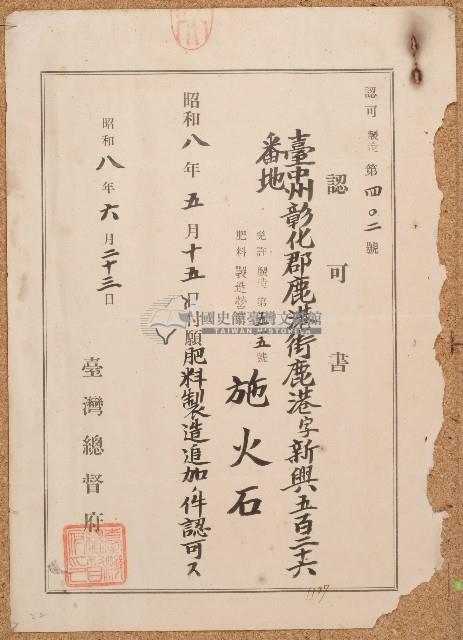 認可 製造 第四〇二號
認可書
臺中州彰化郡鹿港街鹿港字新興五百二十六
番地
免許 製造 第五五號
肥料 製造營
施火石
昭和八年五月十五日付願肥料製造追加ノ件認可ス
昭和八年六月二十三日
臺灣總督府
國史館臺灣文獻館
TAIWAN HISTORICA
1137